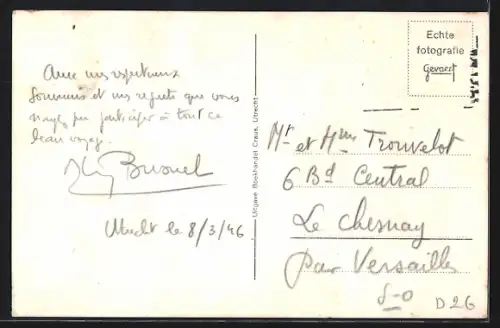 Avec nos respectueux
Souvenirs et nos regrets que vous
n'ayez pu participer à tout ce
beau voyage.
Utrecht le 8/3/46
Uitgave Boekhandel Craus, Utrecht
Echte
fotografie
Gevaert
Mr et Mme Trouvelot
6 Bd Central
Le Chesnay
par Versailles
S-O
D26